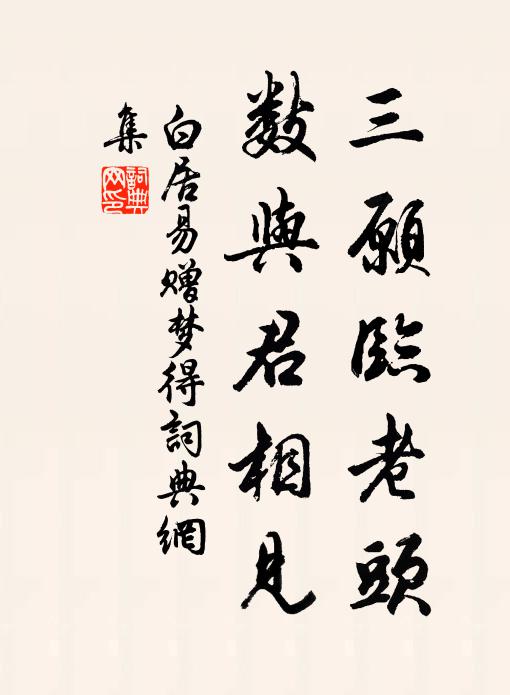 三願臨老頭
數與君相見
白居易赠梦得詞典網
集
詞典
网印